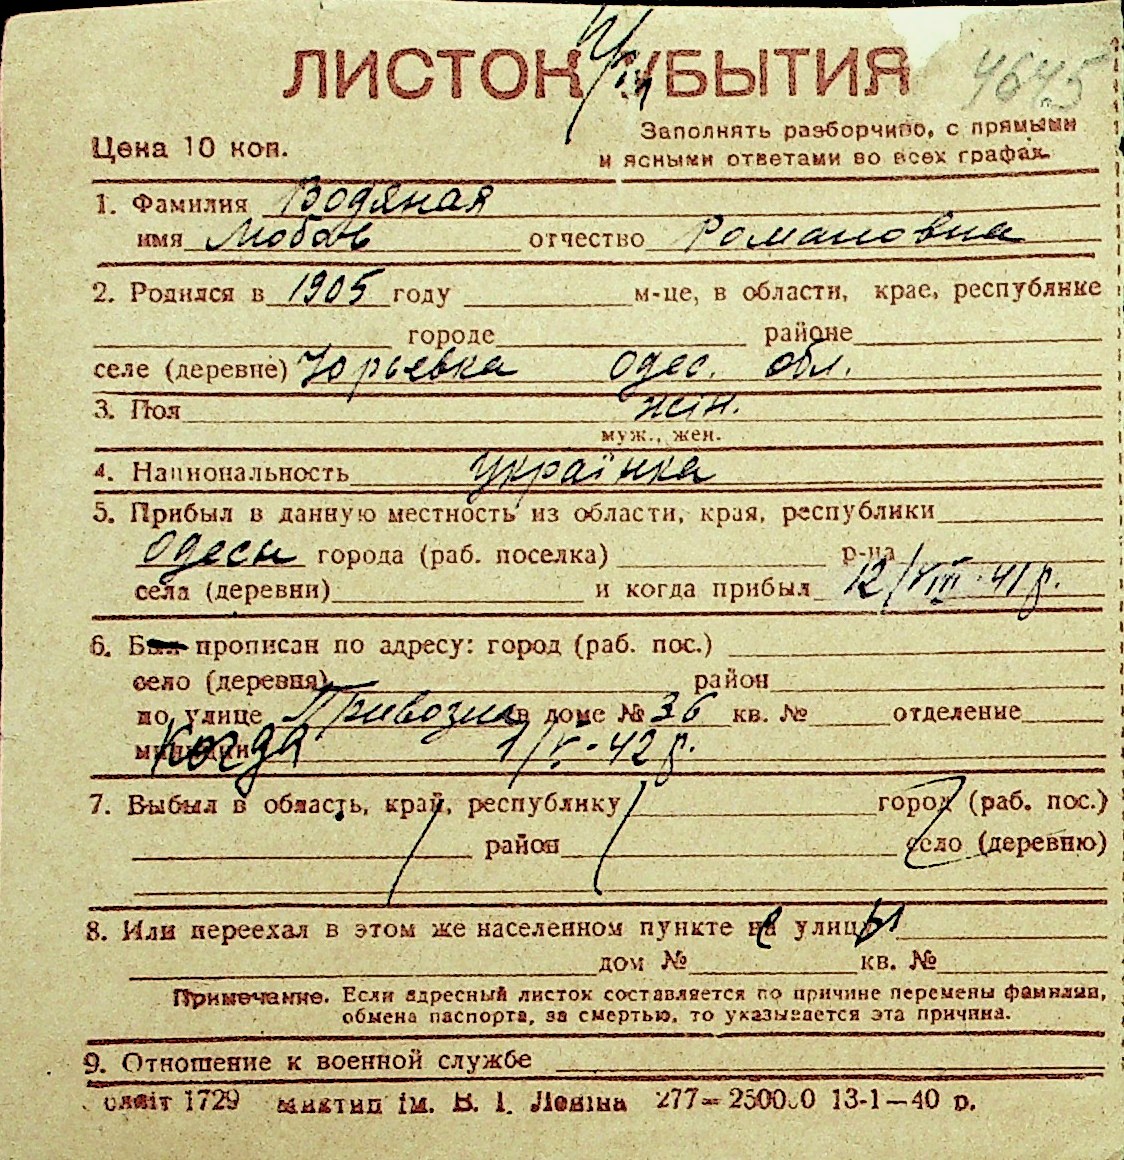 ЛИСТОК УБЫТИЯ
4645
Цена 10 коп.
Заполнять разборчиво, с прямыми
и ясными ответами во всех графах.
1. Фамилия Водяная
имя Любовь отчество Романовна
2. Родился в 1905 году м-це, в области, крае, республике
городе районе
селе (деревне) Юрьевка Одес. обл.
3. Пол жін.
муж., жен.
4. Национальность Українка
5. Прибыл в данную местность из области, края, республики
Одесы города (раб. поселка) р-на
села (деревни) и когда прибыл 12/VIII-41 р.
6. Был прописан по адресу: город (раб. пос.)
село (деревня) район
по улице Привозна в доме № 36 кв. № отделение
милиции Когда 1/V-42 р.
7. Выбыл в область, край, республику город (раб. пос.)
район село (деревню)
8. Или переехал в этом же населенном пункте на улицу
дом № кв. №
Примечание. Если адресный листок составляется по причине перемены фамилии,
обмена паспорта, за смертью, то указывается эта причина.
9. Отношение к военной службе
1729 ім. В. І. Леніна 277—250000 13-1—40 р.